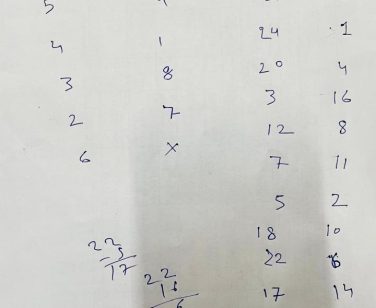 5
4 1 24 1
3 8 20 4
2 7 3 16
6 x 12 8
7 11
5 2
18 10
22 6
17 14
22
5
17
22
6